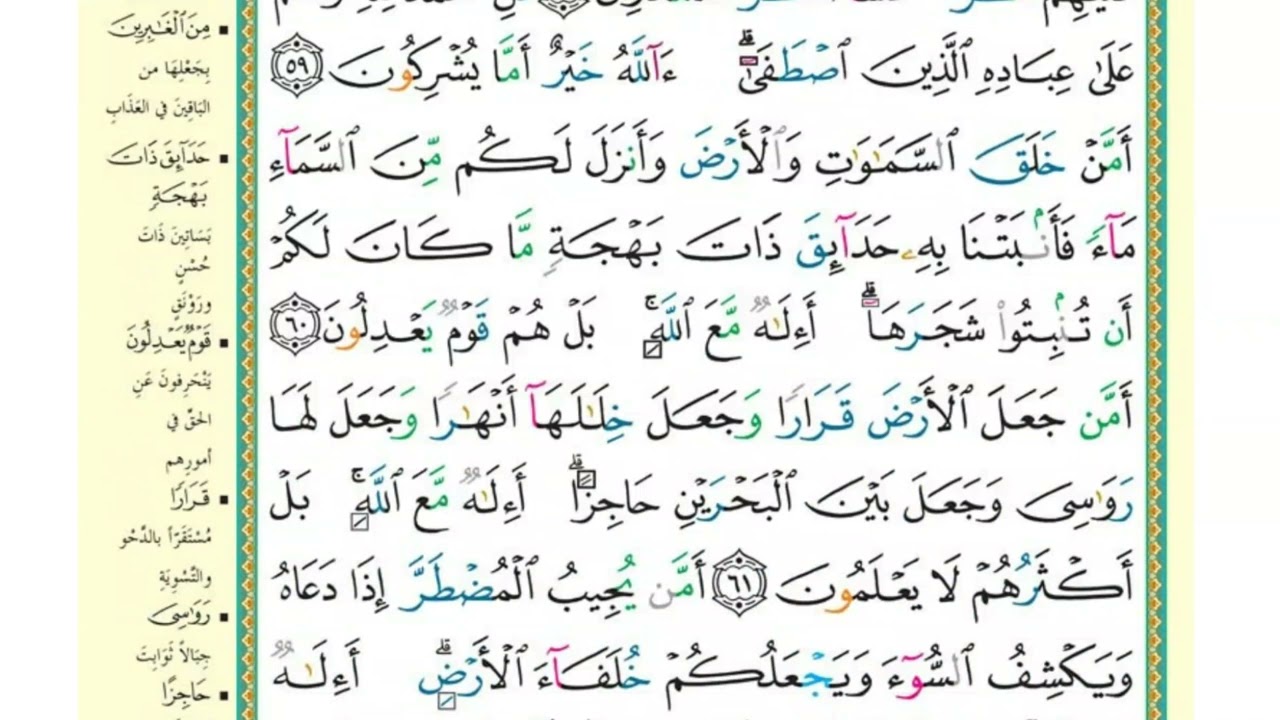 عَلَىٰ عِبَادِهِ ٱلَّذِينَ ٱصۡطَفَىٰٓۗ ءَآللَّهُ خَيۡرٌ أَمَّا يُشۡرِكُونَ ٥٩
أَمَّنۡ خَلَقَ ٱلسَّمَٰوَٰتِ وَٱلۡأَرۡضَ وَأَنزَلَ لَكُم مِّنَ ٱلسَّمَآءِ
مَآءٗ فَأَنۢبَتۡنَا بِهِۦ حَدَآئِقَ ذَاتَ بَهۡجَةٖ مَّا كَانَ لَكُمۡ
أَن تُنۢبِتُواْ شَجَرَهَآۗ أَءِلَٰهٞ مَّعَ ٱللَّهِۚ بَلۡ هُمۡ قَوۡمٞ يَعۡدِلُونَ ٦٠
أَمَّن جَعَلَ ٱلۡأَرۡضَ قَرَارٗا وَجَعَلَ خِلَٰلَهَآ أَنۡهَٰرٗا وَجَعَلَ لَهَا
رَوَٰسِيَ وَجَعَلَ بَيۡنَ ٱلۡبَحۡرَيۡنِ حَاجِزًاۗ أَءِلَٰهٞ مَّعَ ٱللَّهِۚ بَلۡ
أَكۡثَرُهُمۡ لَا يَعۡلَمُونَ ٦١ أَمَّن يُجِيبُ ٱلۡمُضۡطَرَّ إِذَا دَعَاهُ
وَيَكۡشِفُ ٱلسُّوٓءَ وَيَجۡعَلُكُمۡ خُلَفَآءَ ٱلۡأَرۡضِۗ أَءِلَٰهٞ
مِنَ ٱلۡغَٰبِرِينَ
بِجَعْلِهَا من
البَاقِينَ في العَذَابِ
حَدَآئِقَ ذَاتَ
بَهۡجَةٖ
بَسَاتِينَ ذَاتَ
حُسْنٍ
ورَوْنَقٍ
قَوۡمٞ يَعۡدِلُونَ
يَنْحَرِفُونَ عَنِ
الحَقِّ في
أمورِهِم
قَرَارٗا
مُسْتَقَرّاً بالدَّحْوِ
والتَّسْوِيَةِ
رَوَٰسِيَ
جِبَالاً ثَوَابِتَ
حَاجِزًا